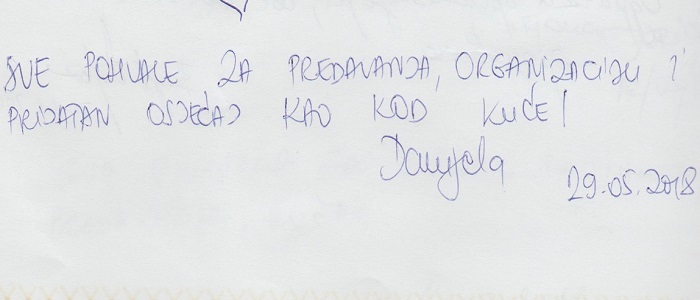 SVE POHVALE ZA PREDAVANJA, ORGANIZACIJU I
PRIJATAN OSJEĆAJ KAO KOD KUĆE!
Danijela
29.05.2018